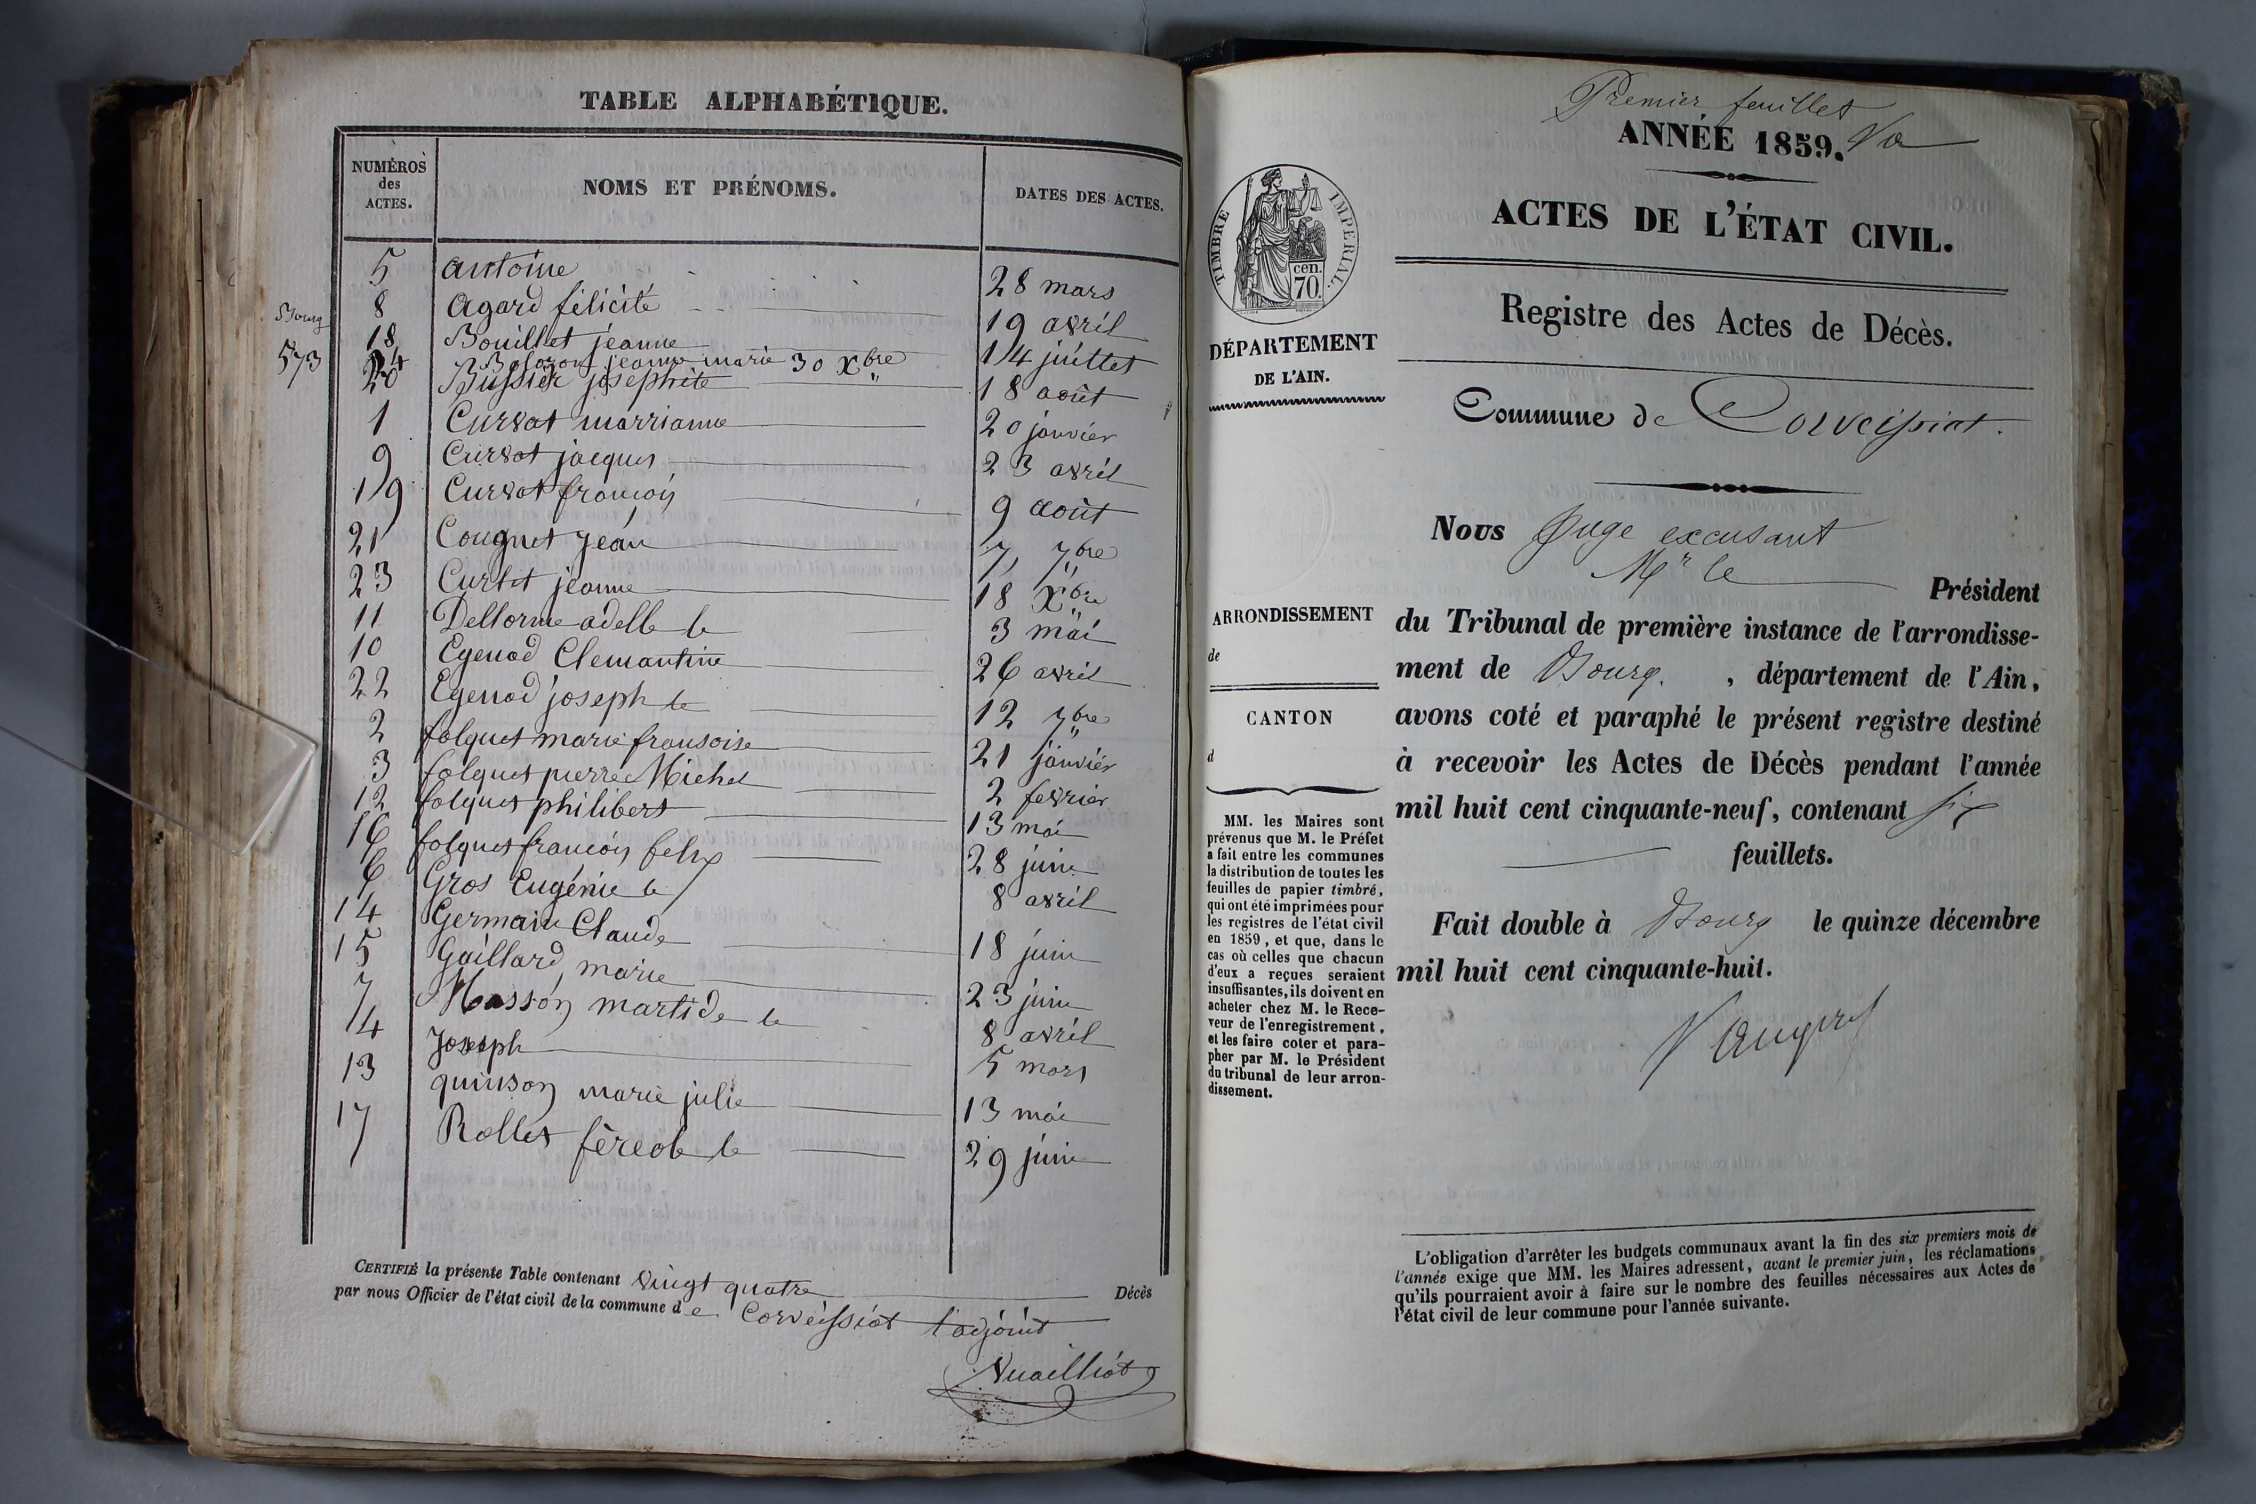 TABLE ALPHABÉTIQUE.
NUMÉROS des ACTES. NOMS ET PRÉNOMS. DATES DES ACTES.
5 Antoine 28 mars
8 Agard félicité 19 avril
Bourg 18 Bouillet jeanne 14 juillet
573 24 Bolozon jeanne marie 30 Xbre
20 Bussier josephite 18 août
1 Curvat marrianne 20 janvier
9 Curvat jacques 23 avril
19 Curvat françois 9 août
21 Cougnet jéan 7 7bre
23 Curtet jeanne 18 Xbre
11 Dellorme adelle le 3 mai
10 Egenod Clemantine 26 avril
22 Egenod joseph le 12 7bre
2 folquet marie fransoise 21 janvier
3 folquet pierre Michel 2 fevrier
12 folquet philibert 13 mai
16 folquet françois felix 28 juin
6 Gros Eugénie le 8 avril
14 Germain Claude 18 juin
15 Gaillard marie 23 juin
7 Masson martide le 8 avril
4 Joseph 5 mars
13 quinson marie julie 13 mai
17 Rollet féreole le 29 juin
CERTIFIÉ la présente Table contenant vingt quatre Décès
par nous Officier de l'état civil de la commune de Corveissiat l'adjoint
Vuailliat
Premier feuillet
ANNÉE 1859.
ACTES DE L'ÉTAT CIVIL.
TIMBRE IMPERIAL.
cen.
70.
Registre des Actes de Décès.
DÉPARTEMENT
DE L'AIN.
Commune de Corveissiat.
Nous Juge excusant
Mr le Président
ARRONDISSEMENT
de
CANTON
d
du Tribunal de première instance de l'arrondisse-
ment de Bourg. , département de l'Ain,
avons coté et paraphé le présent registre destiné
à recevoir les Actes de Décès pendant l'année
mil huit cent cinquante-neuf, contenant six
feuillets.
Fait double à Bourg le quinze décembre
mil huit cent cinquante-huit.
MM. les Maires sont
prévenus que M. le Préfet
a fait entre les communes
la distribution de toutes les
feuilles de papier timbré,
qui ont été imprimées pour
les registres de l'état civil
en 1859, et que, dans le
cas où celles que chacun
d'eux a reçues seraient
insuffisantes, ils doivent en
acheter chez M. le Rece-
veur de l'enregistrement,
et les faire coter et para-
pher par M. le Président
du tribunal de leur arron-
dissement.
L'obligation d'arrêter les budgets communaux avant la fin des six premiers mois de
l'année exige que MM. les Maires adressent, avant le premier juin, les réclamations
qu'ils pourraient avoir à faire sur le nombre des feuilles nécessaires aux Actes de
l'état civil de leur commune pour l'année suivante.